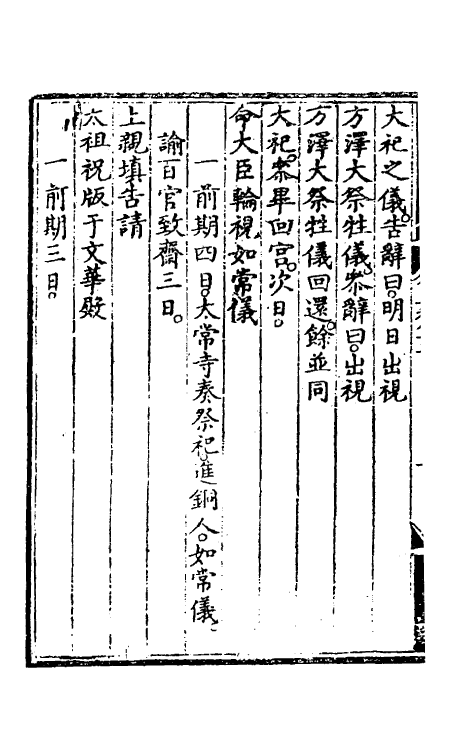 大祀之儀。告辭曰。明日出視
方澤大祭牲儀。叅辭曰。出視
方澤大祭牲儀回還。餘並同
大祀。叅畢回宮。次日。
命大臣輪視。如常儀
一前期四日。太常寺奏祭祀。進銅人。如常儀。
諭百官致齋三日。
上親填告請
太祖祝版于文華殿
一前期三日。